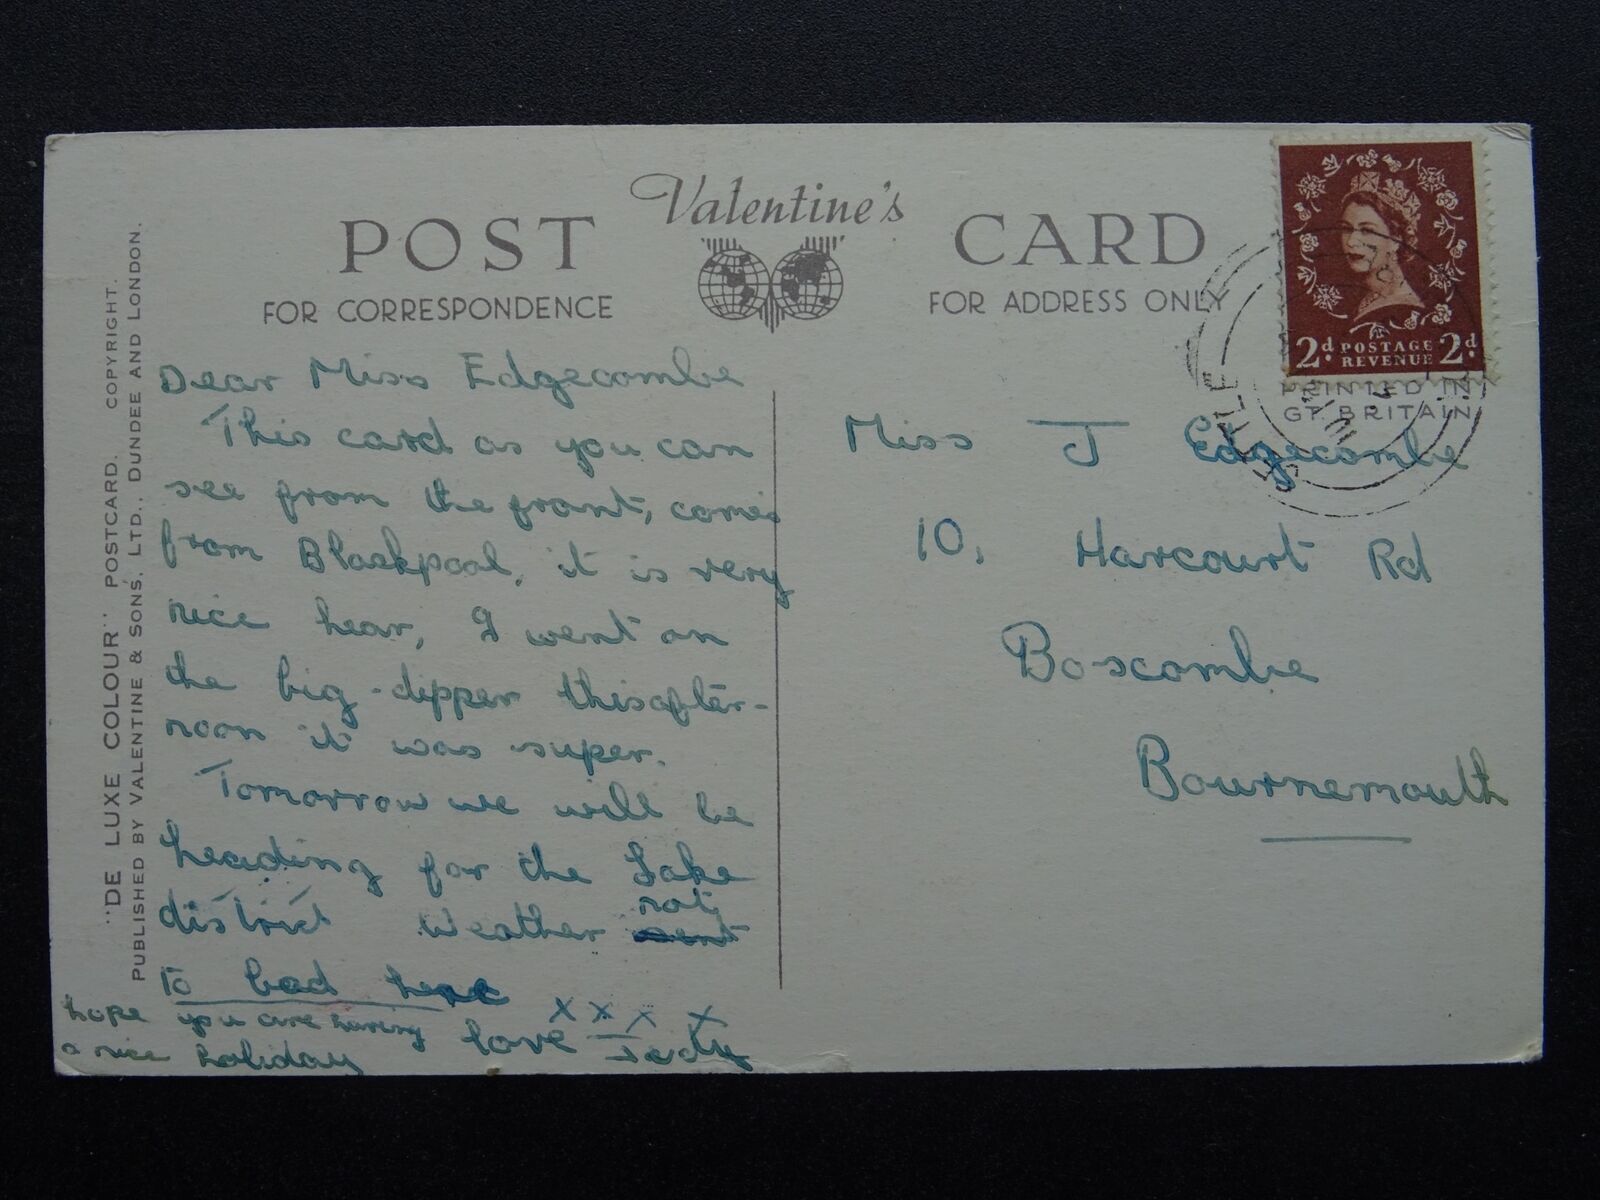 Valentine's
POST CARD
FOR CORRESPONDENCE
FOR ADDRESS ONLY
"DE LUXE COLOUR" POSTCARD. COPYRIGHT.
PUBLISHED BY VALENTINE & SONS, LTD., DUNDEE AND LONDON.
2d POSTAGE 2d
REVENUE
PRINTED IN
GT. BRITAIN
SETTLE
Dear Miss Edgecombe
This card as you can
see from the front, comes
from Blackpool, it is very
nice hear, I went on
the big-dipper this after-
noon it was super.
Tomorrow we will be
heading for the Lake
district Weather not
to bad here
hope you are having
a nice holiday
love
x x x x
Miss J Edgecombe
10, Harcourt Rd
Boscombe
Bournemouth